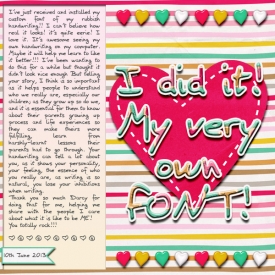 I've just received and installed my
custom font of my rubbish
handwriting!! I can't believe how
real it looks! it's quite eerie! I
love it. It's awesome seeing my
own handwriting on my computer.
Maybe it will help me learn to like
it better!!! I've been wanting to
do this for a while but thought it
didn't look nice enough. But telling
your story, I think is so important
as it helps people to understand
who we really are, especially our
children; as they grow up so do we,
and it is essential for them to know
about their parents growing up
process and life experiences so
they can make theirs more
fulfilling, learn from
harshly-learnt lessons their
parents had to go through. Your
handwriting can tell a lot about
you, as it shows your personality,
your feeling, the essence of who
you really are, as writing is so
natural, you lose your inhibitions
when writing.
Thank you so much Darcy for
doing that for me, helping me
share with the people I care
about what it is like to be ME!
You totally rock!!!
10th June 2013
I did it!
My very
own
FONT!